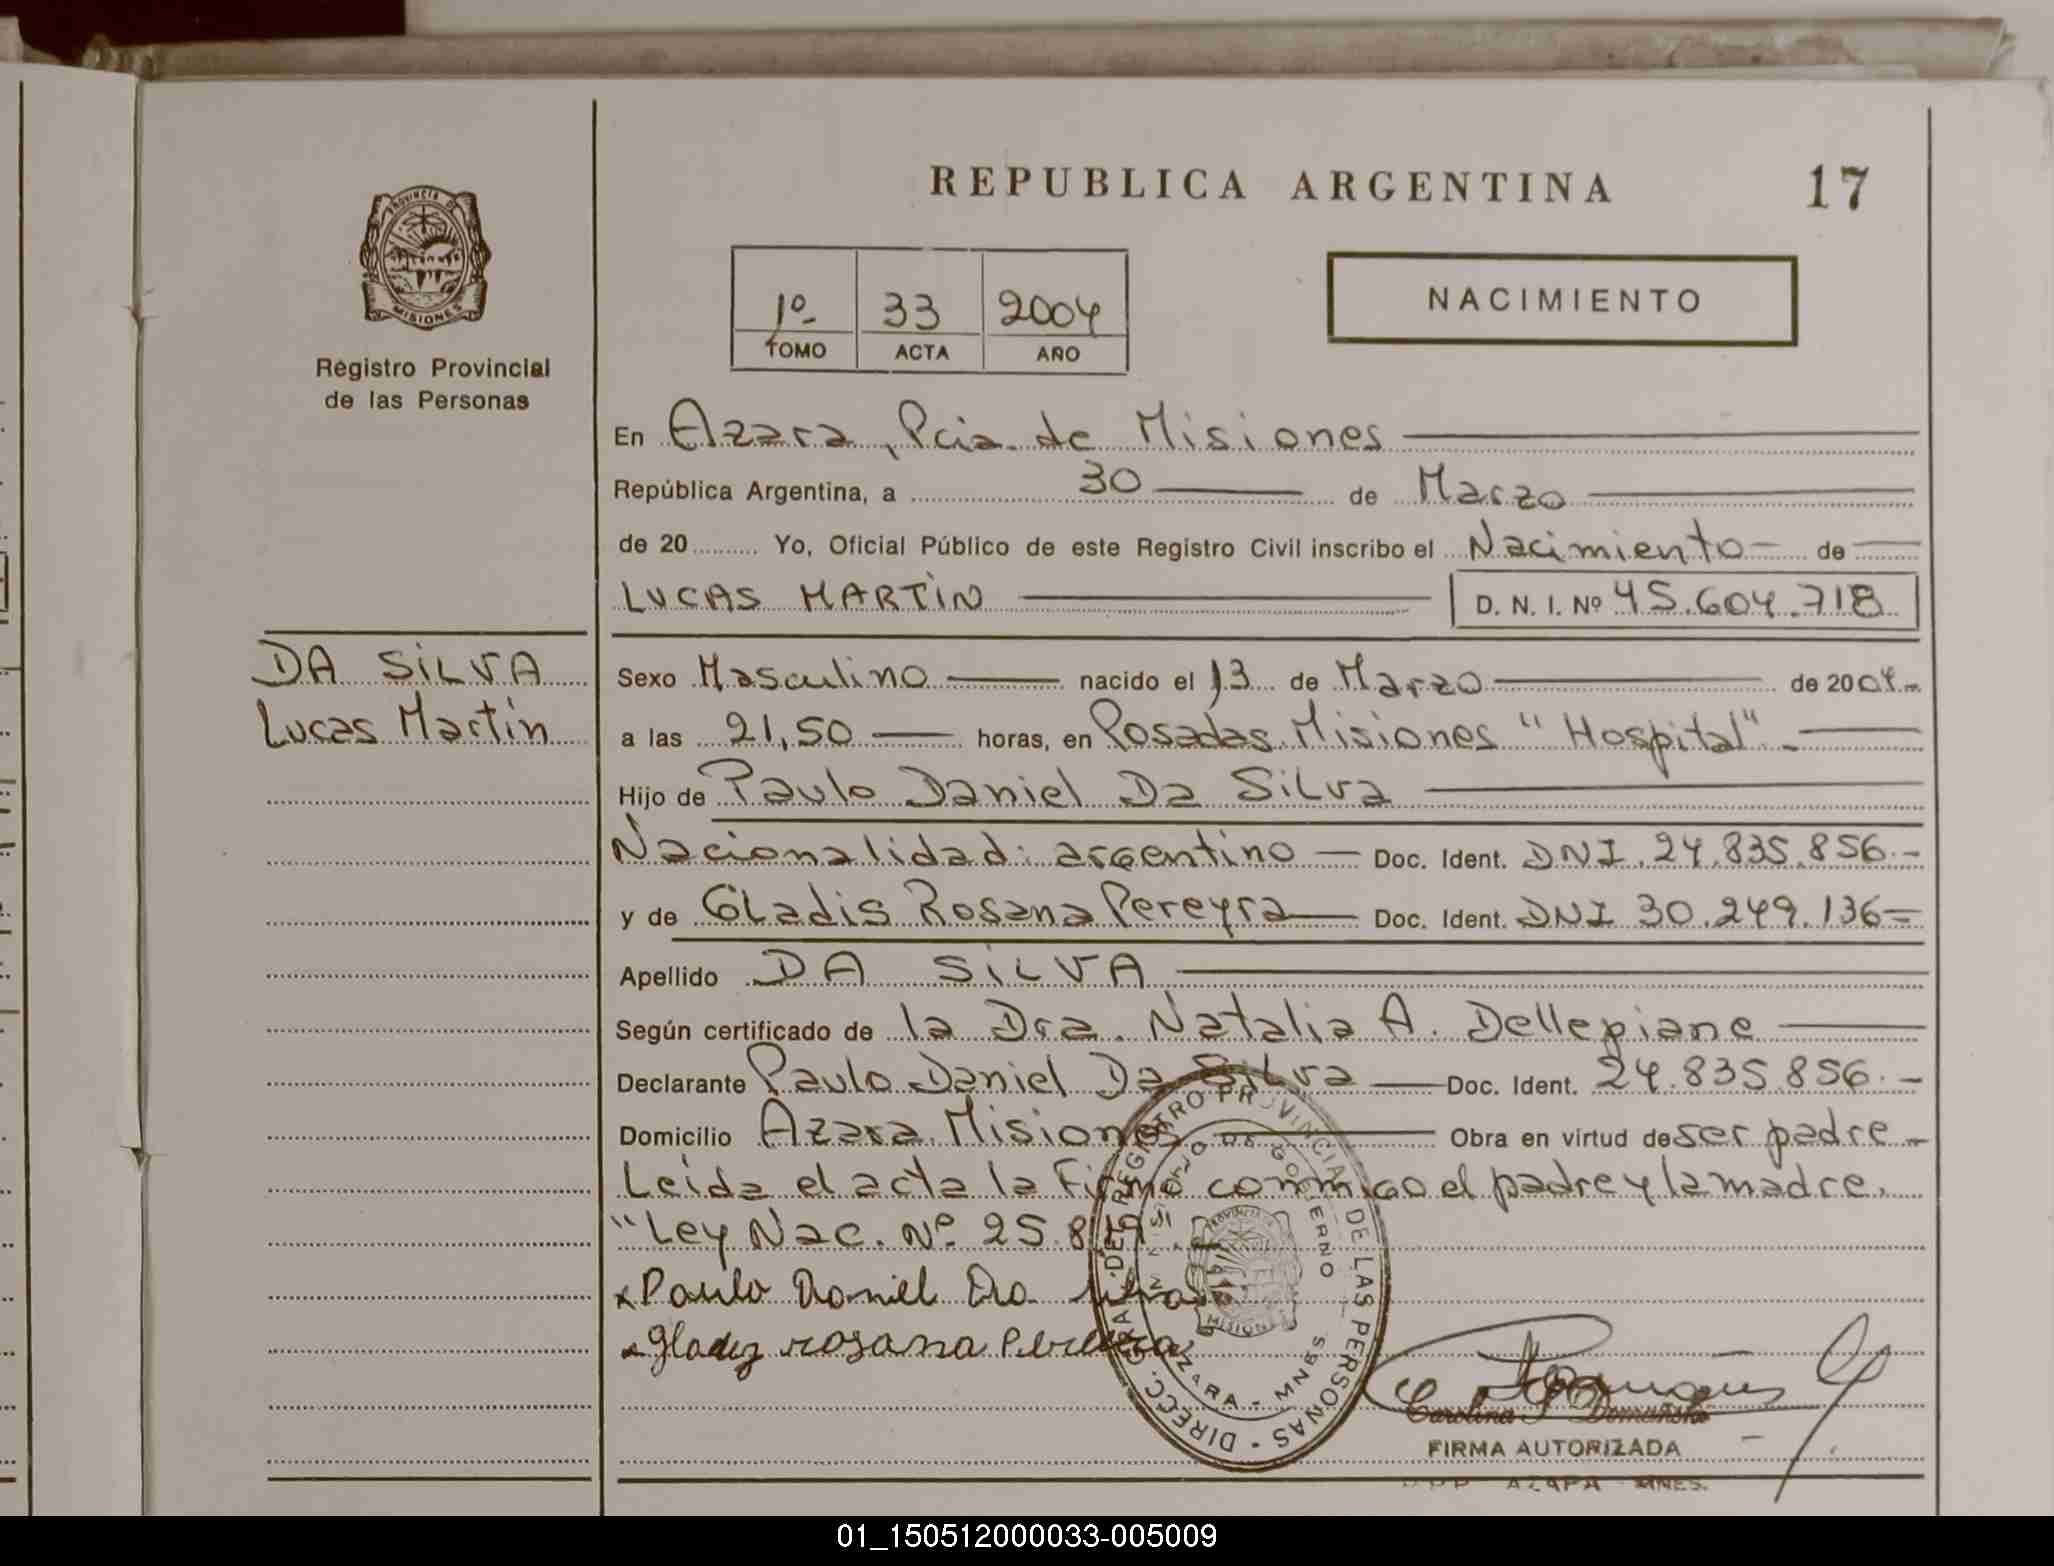 REPUBLICA ARGENTINA
17
PROVINCIA DE
MISIONES
Registro Provincial
de las Personas
1º
33
2004
TOMO
ACTA
AÑO
NACIMIENTO
En Azara, Pcia. de Misiones
República Argentina, a 30 de Marzo
de 20 Yo, Oficial Público de este Registro Civil inscribo el Nacimiento de
LUCAS MARTÍN D. N. I. Nº 45.604.718
DA SILVA
Lucas Martín
Sexo Masculino nacido el 13 de Marzo de 2004.-
a las 21,50 horas, en Posadas Misiones "Hospital".-
Hijo de Paulo Daniel Da Silva
Nacionalidad: argentino Doc. Ident. DNI. 24.835.856.-
y de Gladis Rosana Pereyra Doc. Ident. DNI 30.249.136=
Apellido DA SILVA
Según certificado de la Dra. Natalia A. Dellepiane
Declarante Paulo Daniel Da Silva Doc. Ident. 24.835.856.-
Domicilio Azara Misiones Obra en virtud de ser padre.-
Leída el acta la Firmó conmigo el padre y la madre.
"Ley Nac. Nº 25.819
x Paulo Daniel Da Silva
x Gladez rosana Pereira
DIRECC. GRAL. DEL REGISTRO PROVINCIAL DE LAS PERSONAS
MINISTERIO DE GOBIERNO
AZARA - MNES
MISIONES
Carolina Domańska
FIRMA AUTORIZADA
AZARA MNES.
01_150512000033-005009